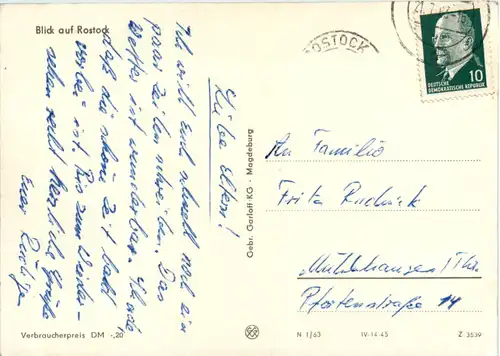 Blick auf Rostock
Liebe Eltern!
Ich will Euch schnell noch ein
paar Zeilen schreiben. Das
Wetter ist wunderbar. Schade
daß die schöne Zeit bald
vorbei ist. Bis zum Wieder-
sehen recht herzliche Grüße
Euer
Gebr. Garloff KG · Magdeburg
ROSTOCK
DEUTSCHE
DEMOKRATISCHE REPUBLIK
10
An Familie
Fritz
Mühlhausen / Thür.
Pfortenstraße 14
Verbraucherpreis DM -,20
N 1/63
IV-14-45
Z 3539